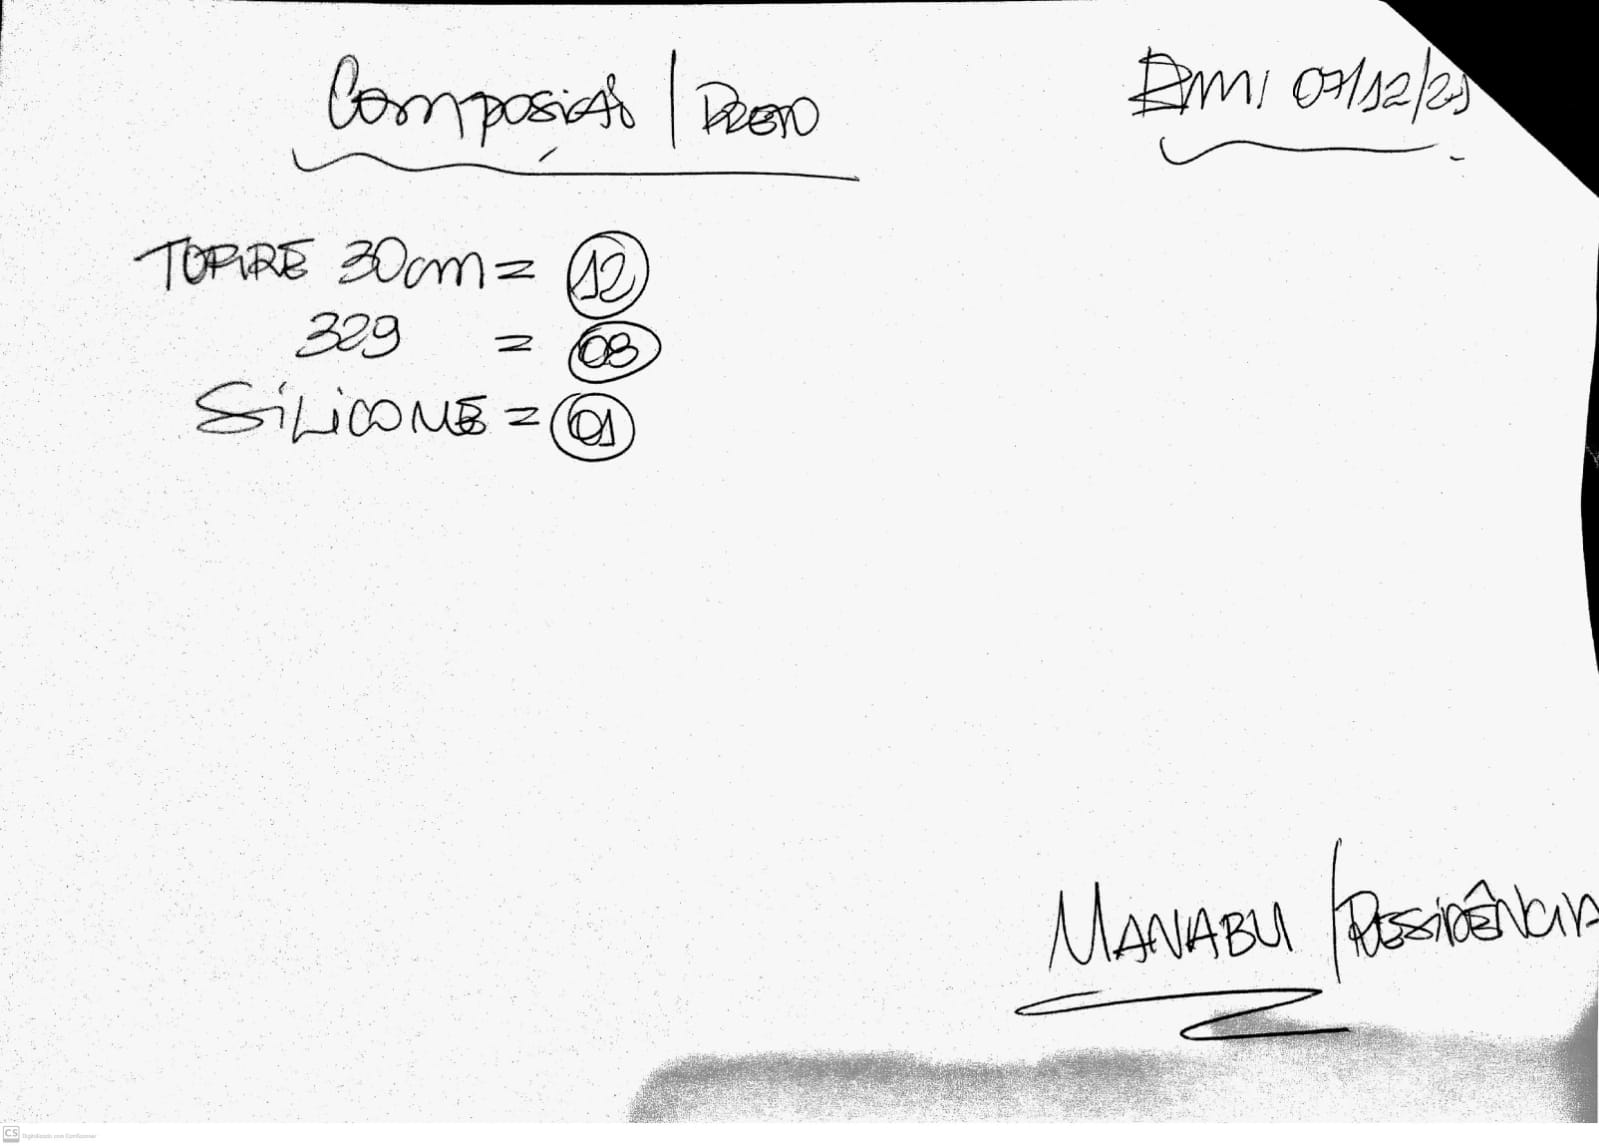 Composição | PRETO
Em: 07/12/21
TORRE 30cm = 12
329 = 08
SILICONE = 01
MANABU / RESSIDÊNCIA
CS Digitalizado com CamScanner